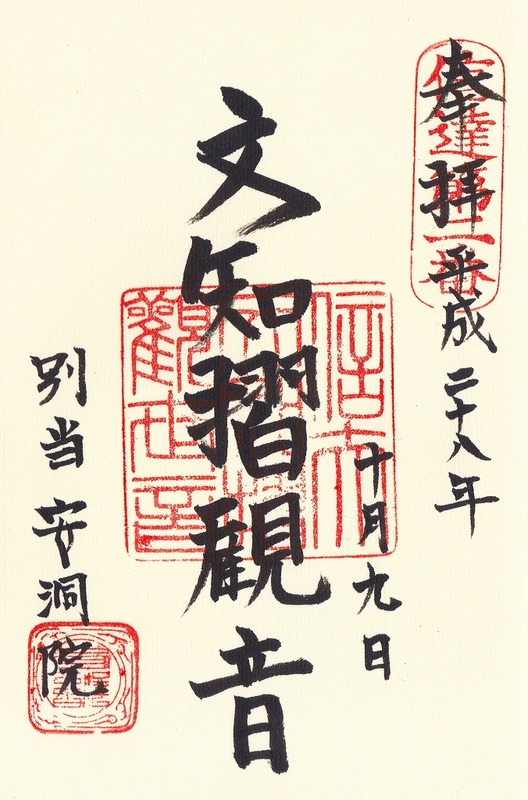 奉拝
平成二十八年
十月九日
文知摺観音
別当 安洞院
信達第二番